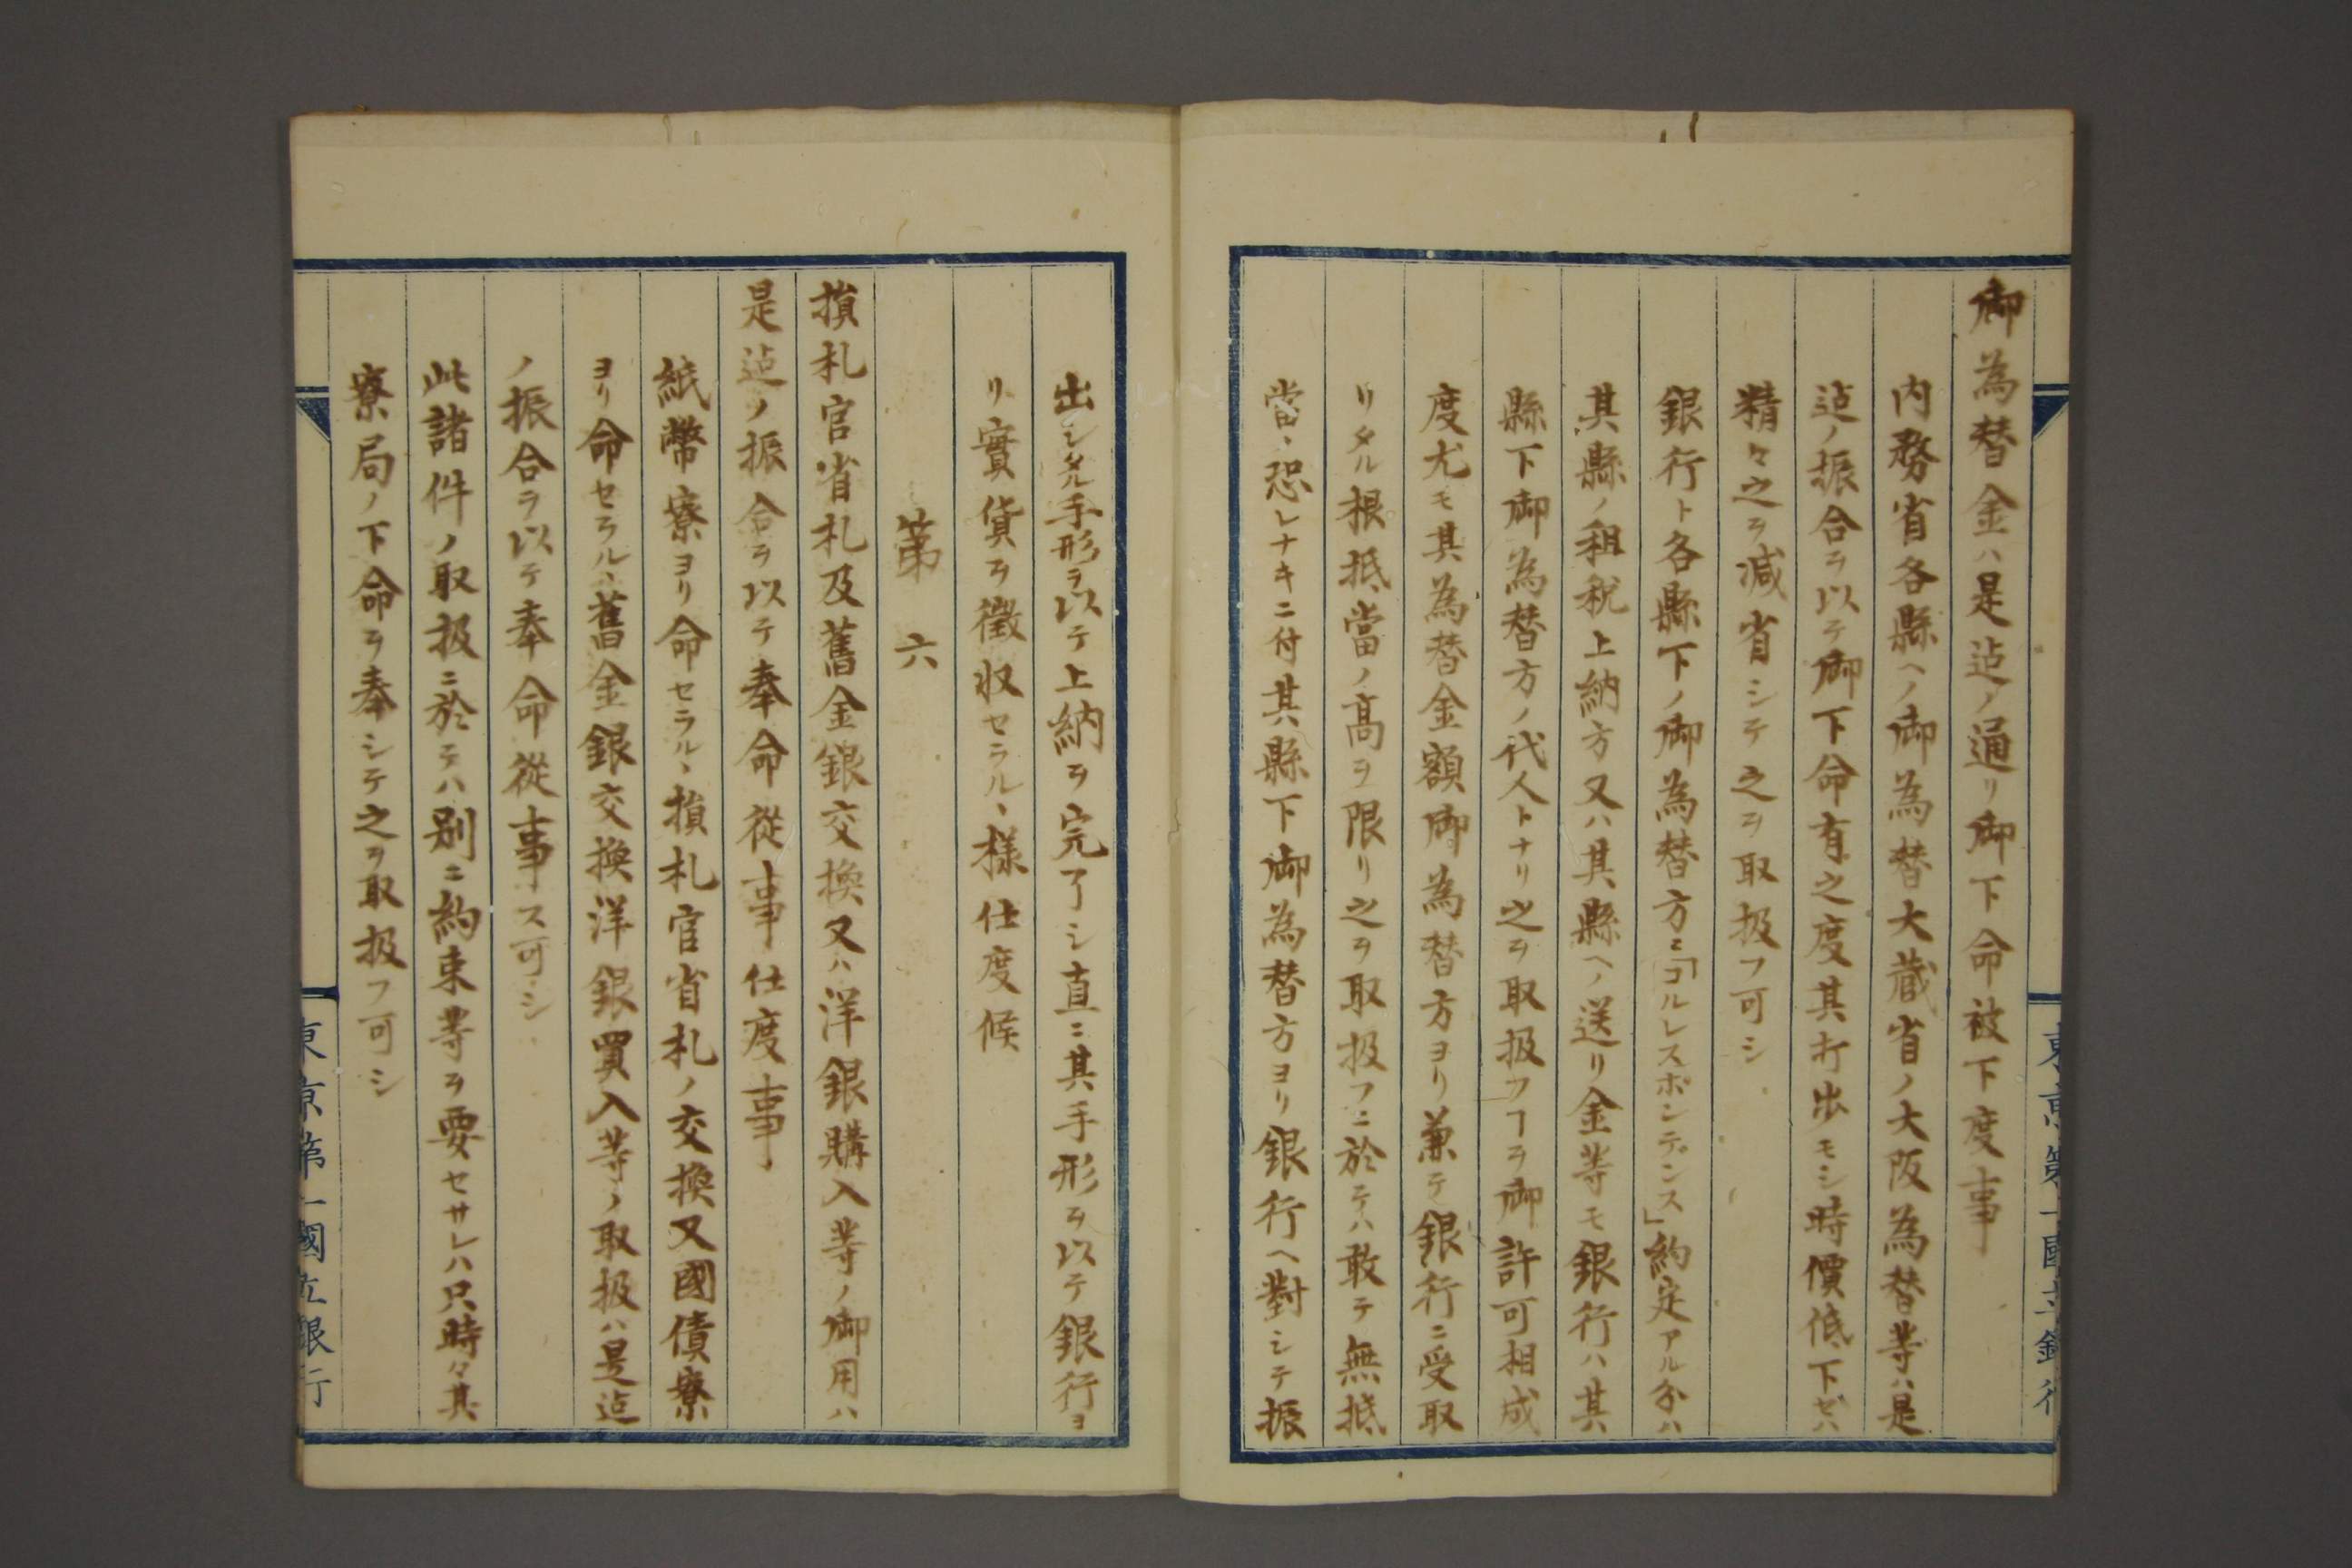 御為替金ハ是迠ノ通リ御下命被下度事
内務省各縣ヘノ御為替大蔵省ノ大阪為替等ハ是
迠ノ振合ヲ以テ御下命有之度其打出モシ時價低下ゼハ
精々之ヲ減省シテ之ヲ取扱フ可シ
銀行ト各縣下ノ御為替方ニ「コルレスポンデンス」約定アル分ハ
其縣ノ租税上納方又ハ其縣ヘノ送リ金等モ銀行ハ其
縣下御為替方ノ代人トナリ之ヲ取扱フヿヲ御許可相成
度尤モ其為替金額御為替方ヨリ兼テ銀行ニ受取
リタル根抵當ノ高ヲ限リ之ヲ取扱フニ於テハ敢テ無抵
當ヽ恐レナキニ付其縣下御為替方ヨリ銀行ヘ對シテ振
東京第一國立銀行
出シタル手形ヲ以テ上納ヲ完了シ直ニ其手形ヲ以テ銀行ヨ
リ實貨ヲ徴收セラルヽ様仕度候
第六
損札官省札及舊金銀交換又ハ洋銀購入等ノ御用ハ
是迠ノ振合ヲ以テ奉命從事仕度事
紙幣寮ヨリ命セラルヽ損札官省札ノ交換又國債寮
ヨリ命セラルヽ舊金銀交換洋銀買入等ノ取扱ハ是迠
ノ振合ヲ以テ奉命從事ス可シ
此諸件ノ取扱ニ於テハ別ニ約束等ヲ要セサレハ只時々其
寮局ノ下命ヲ奉シテ之ヲ取扱フ可シ
東京第一國立銀行